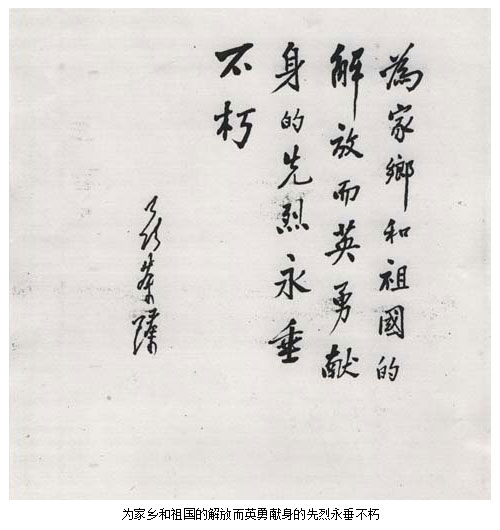 為家鄉和祖國的
解放而英勇献
身的先烈永垂
不朽
聂荣臻
为家乡和祖国的解放而英勇献身的先烈永垂不朽